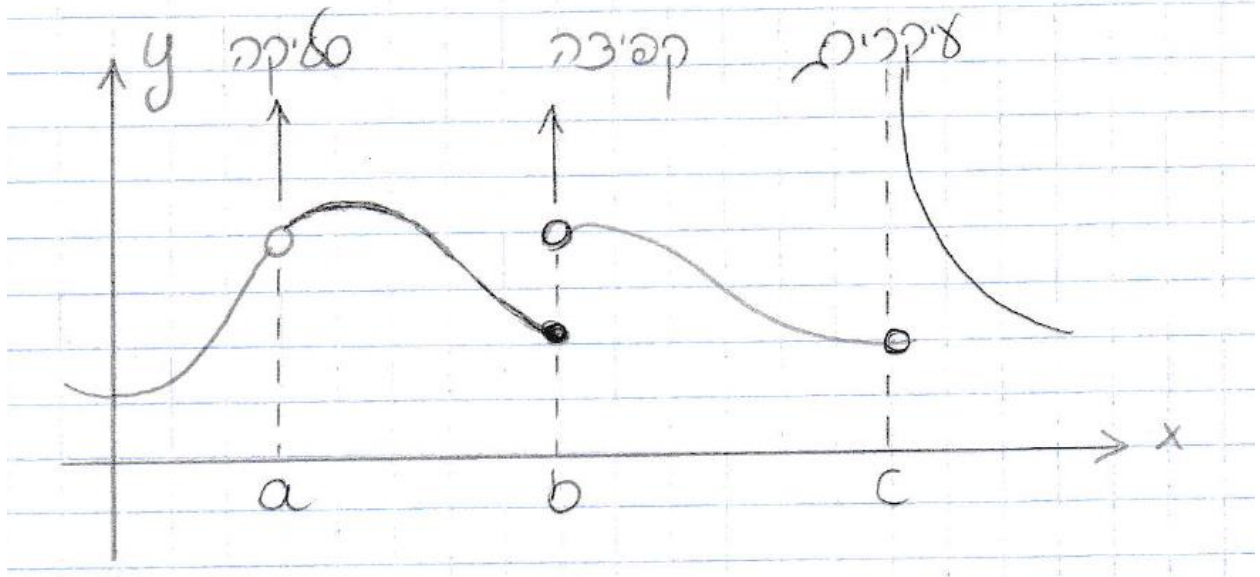 y סליקה קפיצה עיקרית
x
a b c